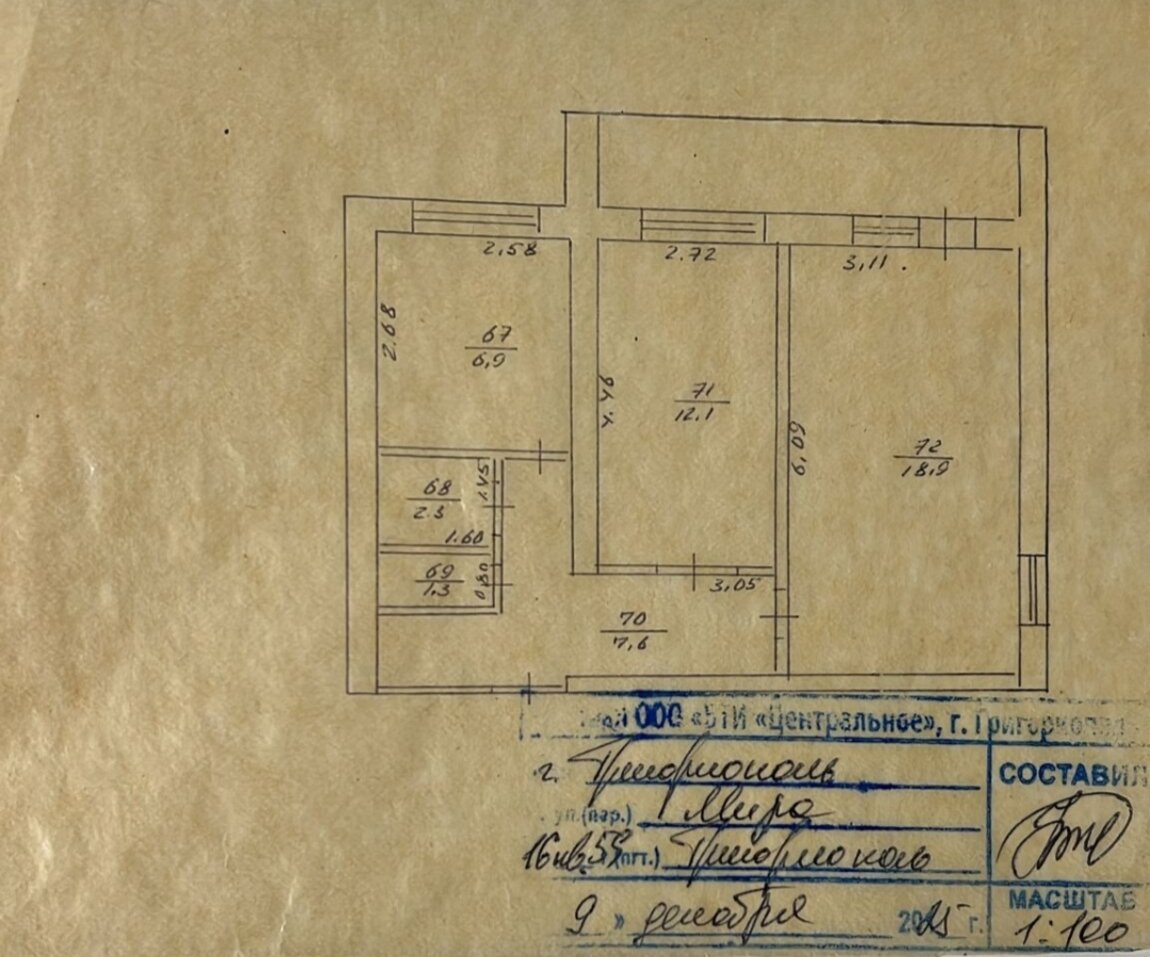 2,58
2.72
3,11.
2.68
67
6,9
4.46
71
12.1
6,09
72
18,9
68
2.3
1.45
1.60
69
1.3
0,80
3,05
70
7,6
ООО «БТИ «Центральное», г. Григориопол
г. Григориополь
ул.(пер.) Мира
СОСТАВИЛ
(пгт.) Григориополь
9 » декабря 2025 г.
МАСШТАБ
1:100